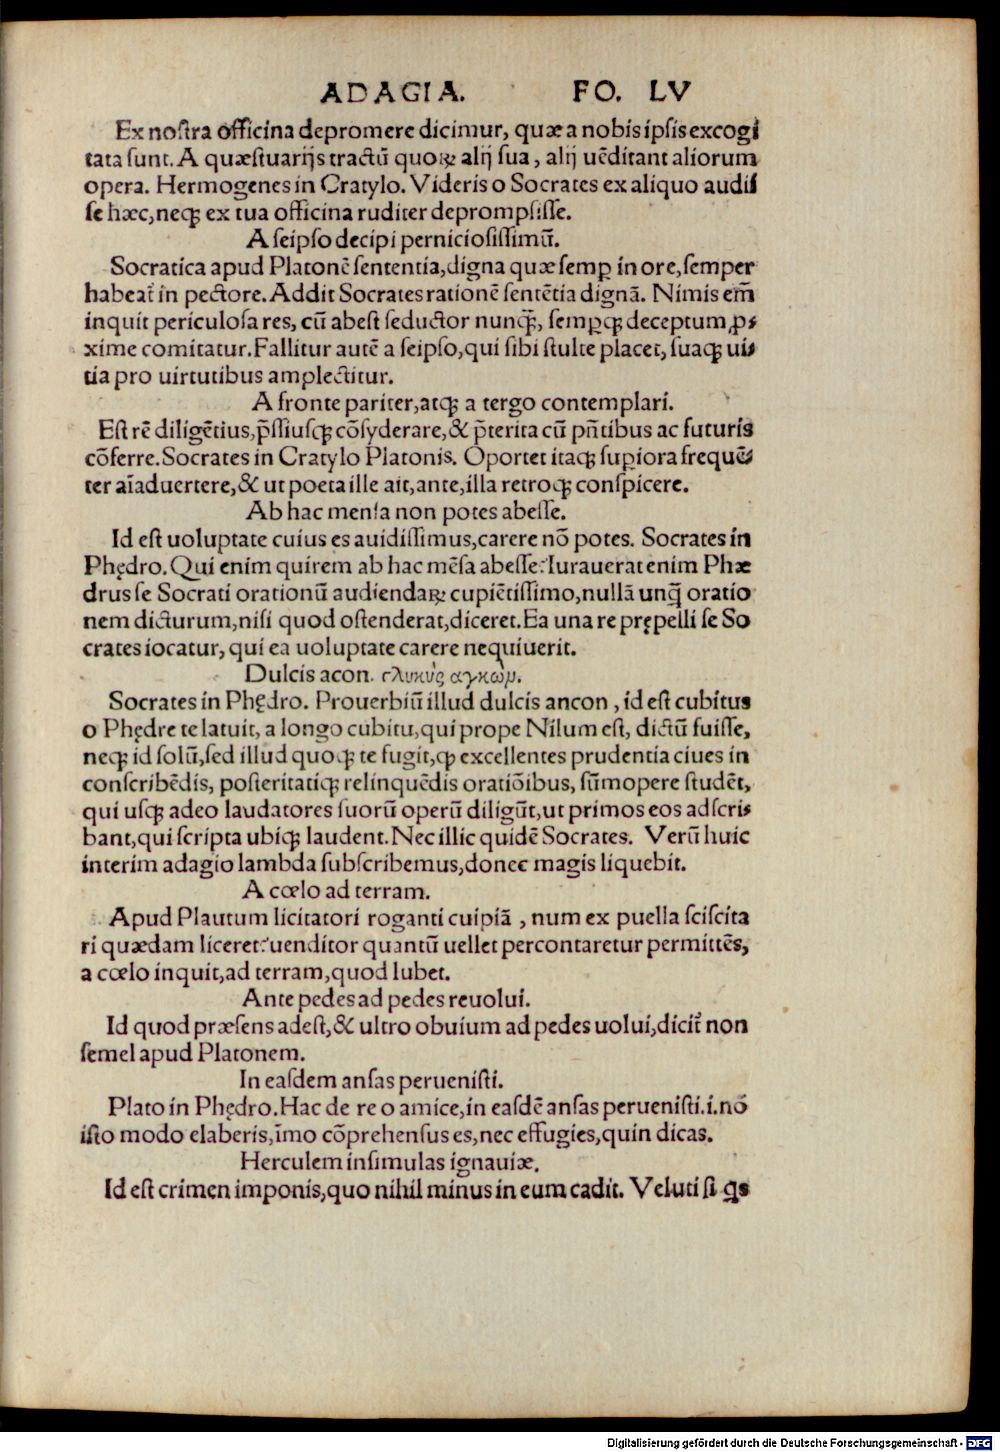 ADAGIA. FO. LV
Ex nostra officina depromere dicimur, quæ a nobis ipsis excogi
tata sunt. A quæstuarijs tractū quoꝝ alij sua, alij uēditant aliorum
opera. Hermogenes in Cratylo. Videris o Socrates ex aliquo audis
se hæc, neqꝫ ex tua officina ruditer deprompsisse.
A seipso decipi perniciosissimū.
Socratica apud Platonē sententia, digna quæ semꝑ in ore, semper
habeat᷑ in pectore. Addit Socrates rationē sentētia dignā. Nimis em̄
inquit periculosa res, cū abest seductor nunqꝫ̄, semꝑqꝫ deceptum ꝓ-
xime comitatur. Fallitur autē a seipso, qui sibi stulte placet, suaqꝫ ui-
tia pro uirtutibus amplectitur.
A fronte pariter, atqꝫ a tergo contemplari.
Est rē diligētius, p̄ssiusqꝫ cōsyderare, & p̄terita cū pn̄tibus ac futuris
cōferre. Socrates in Cratylo Platonis. Oportet itaqꝫ suꝑiora frequē-
ter aīaduertere, & ut poeta ille ait, ante, illa retroqꝫ conspicere.
Ab hac mensa non potes abesse.
Id est uoluptate cuius es auidissimus, carere nō potes. Socrates in
Phędro. Qui enim quirem ab hac mēsa abesse: Iurauerat enim Phæ
drus se Socrati orationū audiendaꝝ cupiētissimo, nullā unq̄ oratio
nem dicturum, nisi quod ostenderat, diceret. Ea una re prępelli se So
crates iocatur, qui ea uoluptate carere nequiuerit.
Dulcis acon. γλυκὺς αγκὼμ.
Socrates in Phędro. Prouerbiū illud dulcis ancon, id est cubitus
o Phędre te latuit, a longo cubitu, qui prope Nilum est, dictū fuisse,
neqꝫ id solū, sed illud quoqꝫ te fugit, ꝙ excellentes prudentia ciues in
conscribēdis, posteritatiqꝫ relinquēdis oratiōibus, sūmopere studēt,
qui usqꝫ adeo laudatores suorū operū diligūt, ut primos eos adscri-
bant, qui scripta ubiqꝫ laudent. Nec illic quidē Socrates. Verū huic
interim adagio lambda subscribemus, donec magis liquebit.
A cœlo ad terram.
Apud Plautum licitatori roganti cuipiā, num ex puella sciscita
ri quædam liceret: uenditor quantū uellet percontaretur permittēs,
a cœlo inquit, ad terram, quod lubet.
Ante pedes ad pedes reuolui.
Id quod præsens adest, & ultro obuium ad pedes uolui, dicit᷑ non
semel apud Platonem.
In easdem ansas peruenisti.
Plato in Phędro. Hac de re o amice, in easdē ansas peruenisti. i. nō
isto modo elaberis, īmo cōprehensus es, nec effugies, quin dicas.
Herculem insimulas ignauiæ.
Id est crimen imponis, quo nihil minus in eum cadit. Veluti si qs
Digitalisierung gefördert durch die Deutsche Forschungsgemeinschaft - DFG